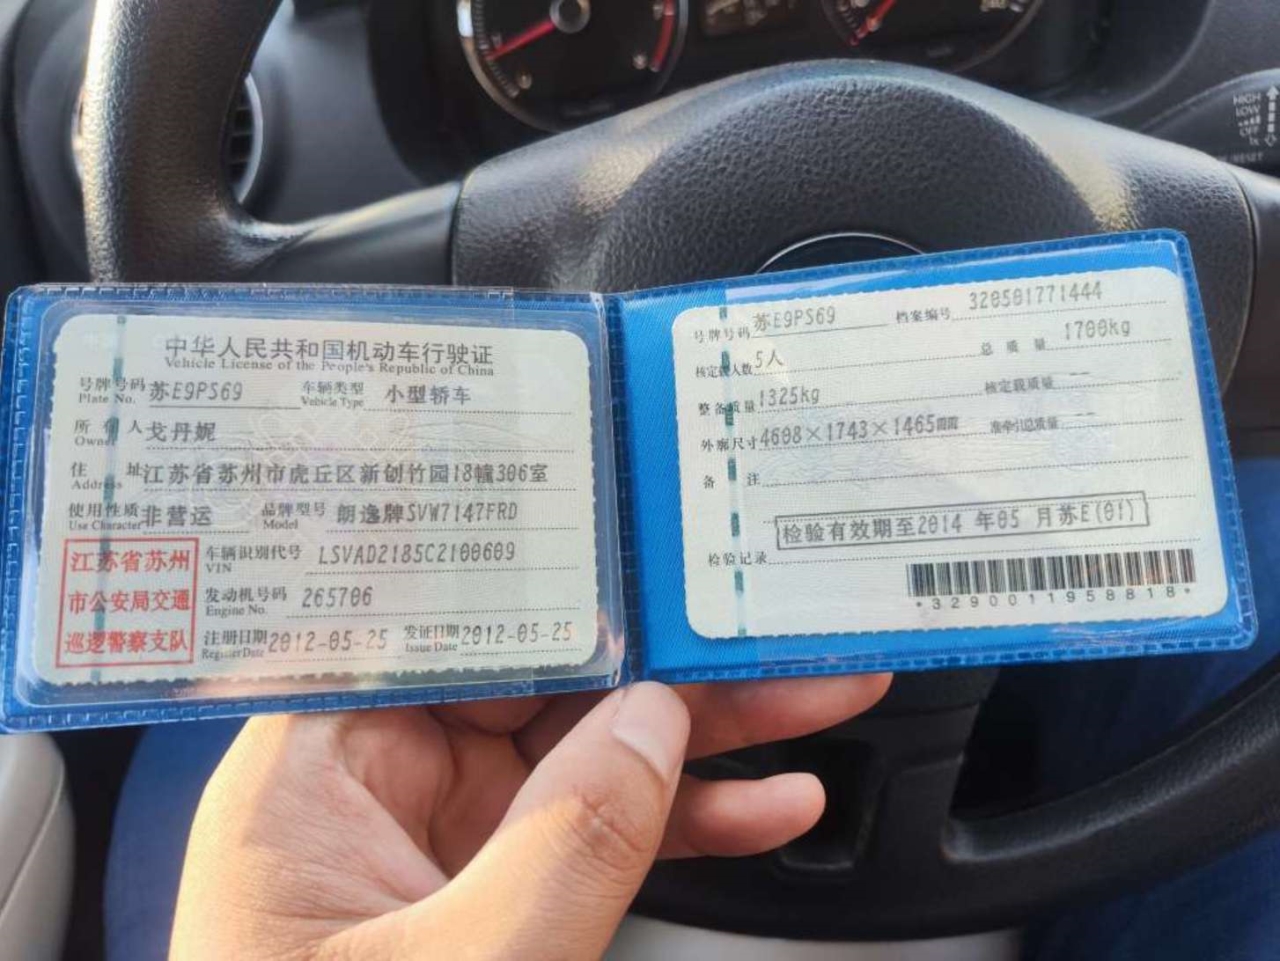 中华人民共和国机动车行驶证
Vehicle License of the People's Republic of China
号牌号码 苏E9PS69 车辆类型 小型轿车
Plate No. Vehicle Type
所有人 戈丹妮
Owner
住址 江苏省苏州市虎丘区新创竹园18幢306室
Address
使用性质 非营运 品牌型号 朗逸牌SVW7147FRD
Use Character Model
江苏省苏州
市公安局交通
巡逻警察支队
车辆识别代号 LSVAD2185C2100609
VIN
发动机号码 265706
Engine No.
注册日期 2012-05-25 发证日期 2012-05-25
Register Date Issue Date
号牌号码 苏E9PS69 档案编号 320501771444
核定载人数 5人 总质量 1700kg
整备质量 1325kg 核定载质量 --
外廓尺寸 4608×1743×1465 准牵引总质量 --
备注
检验有效期至2014年05月苏E(01)
检验记录
*3290011958818*
HIGH
LOW
OFF
1x